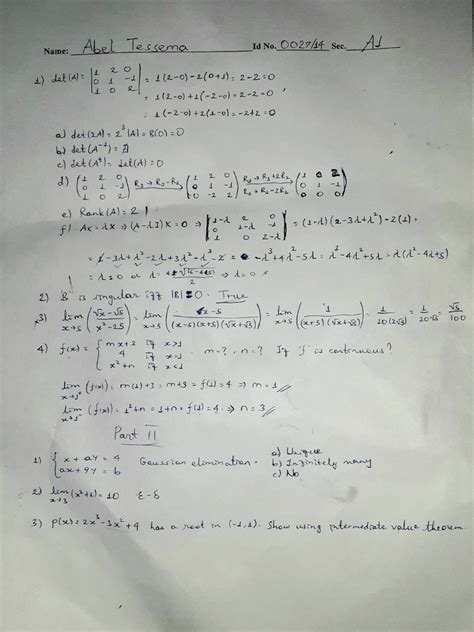 Name: Abel Tessema Id No. 0027/14 Sec. A1
1) det(A) = | 1 2 0 | = 1(2-0)-2(0+1) = 2-2=0
| 0 1 -1 | = 1(2-0)+1(-2-0) = 2-2=0
| 1 0 2 | = 1(-2-0)+2(1-0) = -2+2=0
a) det(2A) = 2³|A| = 8(0) = 0
b) det(A⁻¹) = ∄
c) det(Aᵗ) = det(A) = 0
d) (1 2 0 / 0 1 -1 / 1 0 2) R3→R3-R1 (1 2 0 / 0 1 -1 / 0 -2 2) R3→R3+2R2 R1→R1-2R2 (1 0 2 / 0 1 -1 / 0 0 0)
e) Rank(A) = 2
f) Ax = λX ⇒ (A-λI)X = 0 ⇒ | 1-λ 2 0 / 0 1-λ -1 / 1 0 2-λ | = (1-λ)(2-3λ+λ²)-2(1) =
-λ³+4λ²-5λ = λ³-4λ²+5λ = λ(λ²-4λ+5)
= λ=0 or λ = ⇒ λ=0
2) B is singular iff |B|=0. True
3) lim x→5 (√x-√5 / x²-25) = lim x→5 (x-5 / (x-5)(x+5)(√x+√5)) = lim x→5 (1 / (x+5)(√x+√5)) = 1/10(2√5) = 1/20√5 = √5/100
4) f(x) = { mx+3 if x>1
4 if x=1 m=?, n=? If f is continuous?
x²+n if x<1
lim x→1⁺ (f(x)) = m(1)+3 = m+3 = f(1) = 4 ⇒ m=1
lim x→1⁻ (f(x)) = 1²+n = 1+n = f(1) = 4. ⇒ n=3
Part II
1) { x+ay=4 Gaussian elimination. a) Unique
ax+9y=b b) Infinitely many
c) No
2) lim x→3 (x²+1) = 10 ε-δ
3) P(x) = 2x³-3x²+4 has a root in (-1,1). Show using intermediate value theorem.